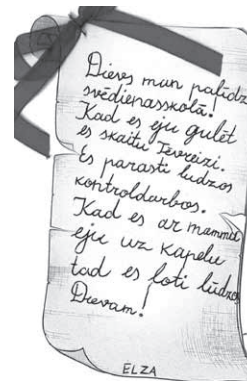 Dievs man palīdz
svēdienasskolā!
Kad es eju gulēt
es skaitu Tēvreizi.
Es parasti lūdzos
kontroldarbos.
Kad es ar mammu
eju uz kapelu
tad es ļoti lūdzos
Dievam!
ELZA